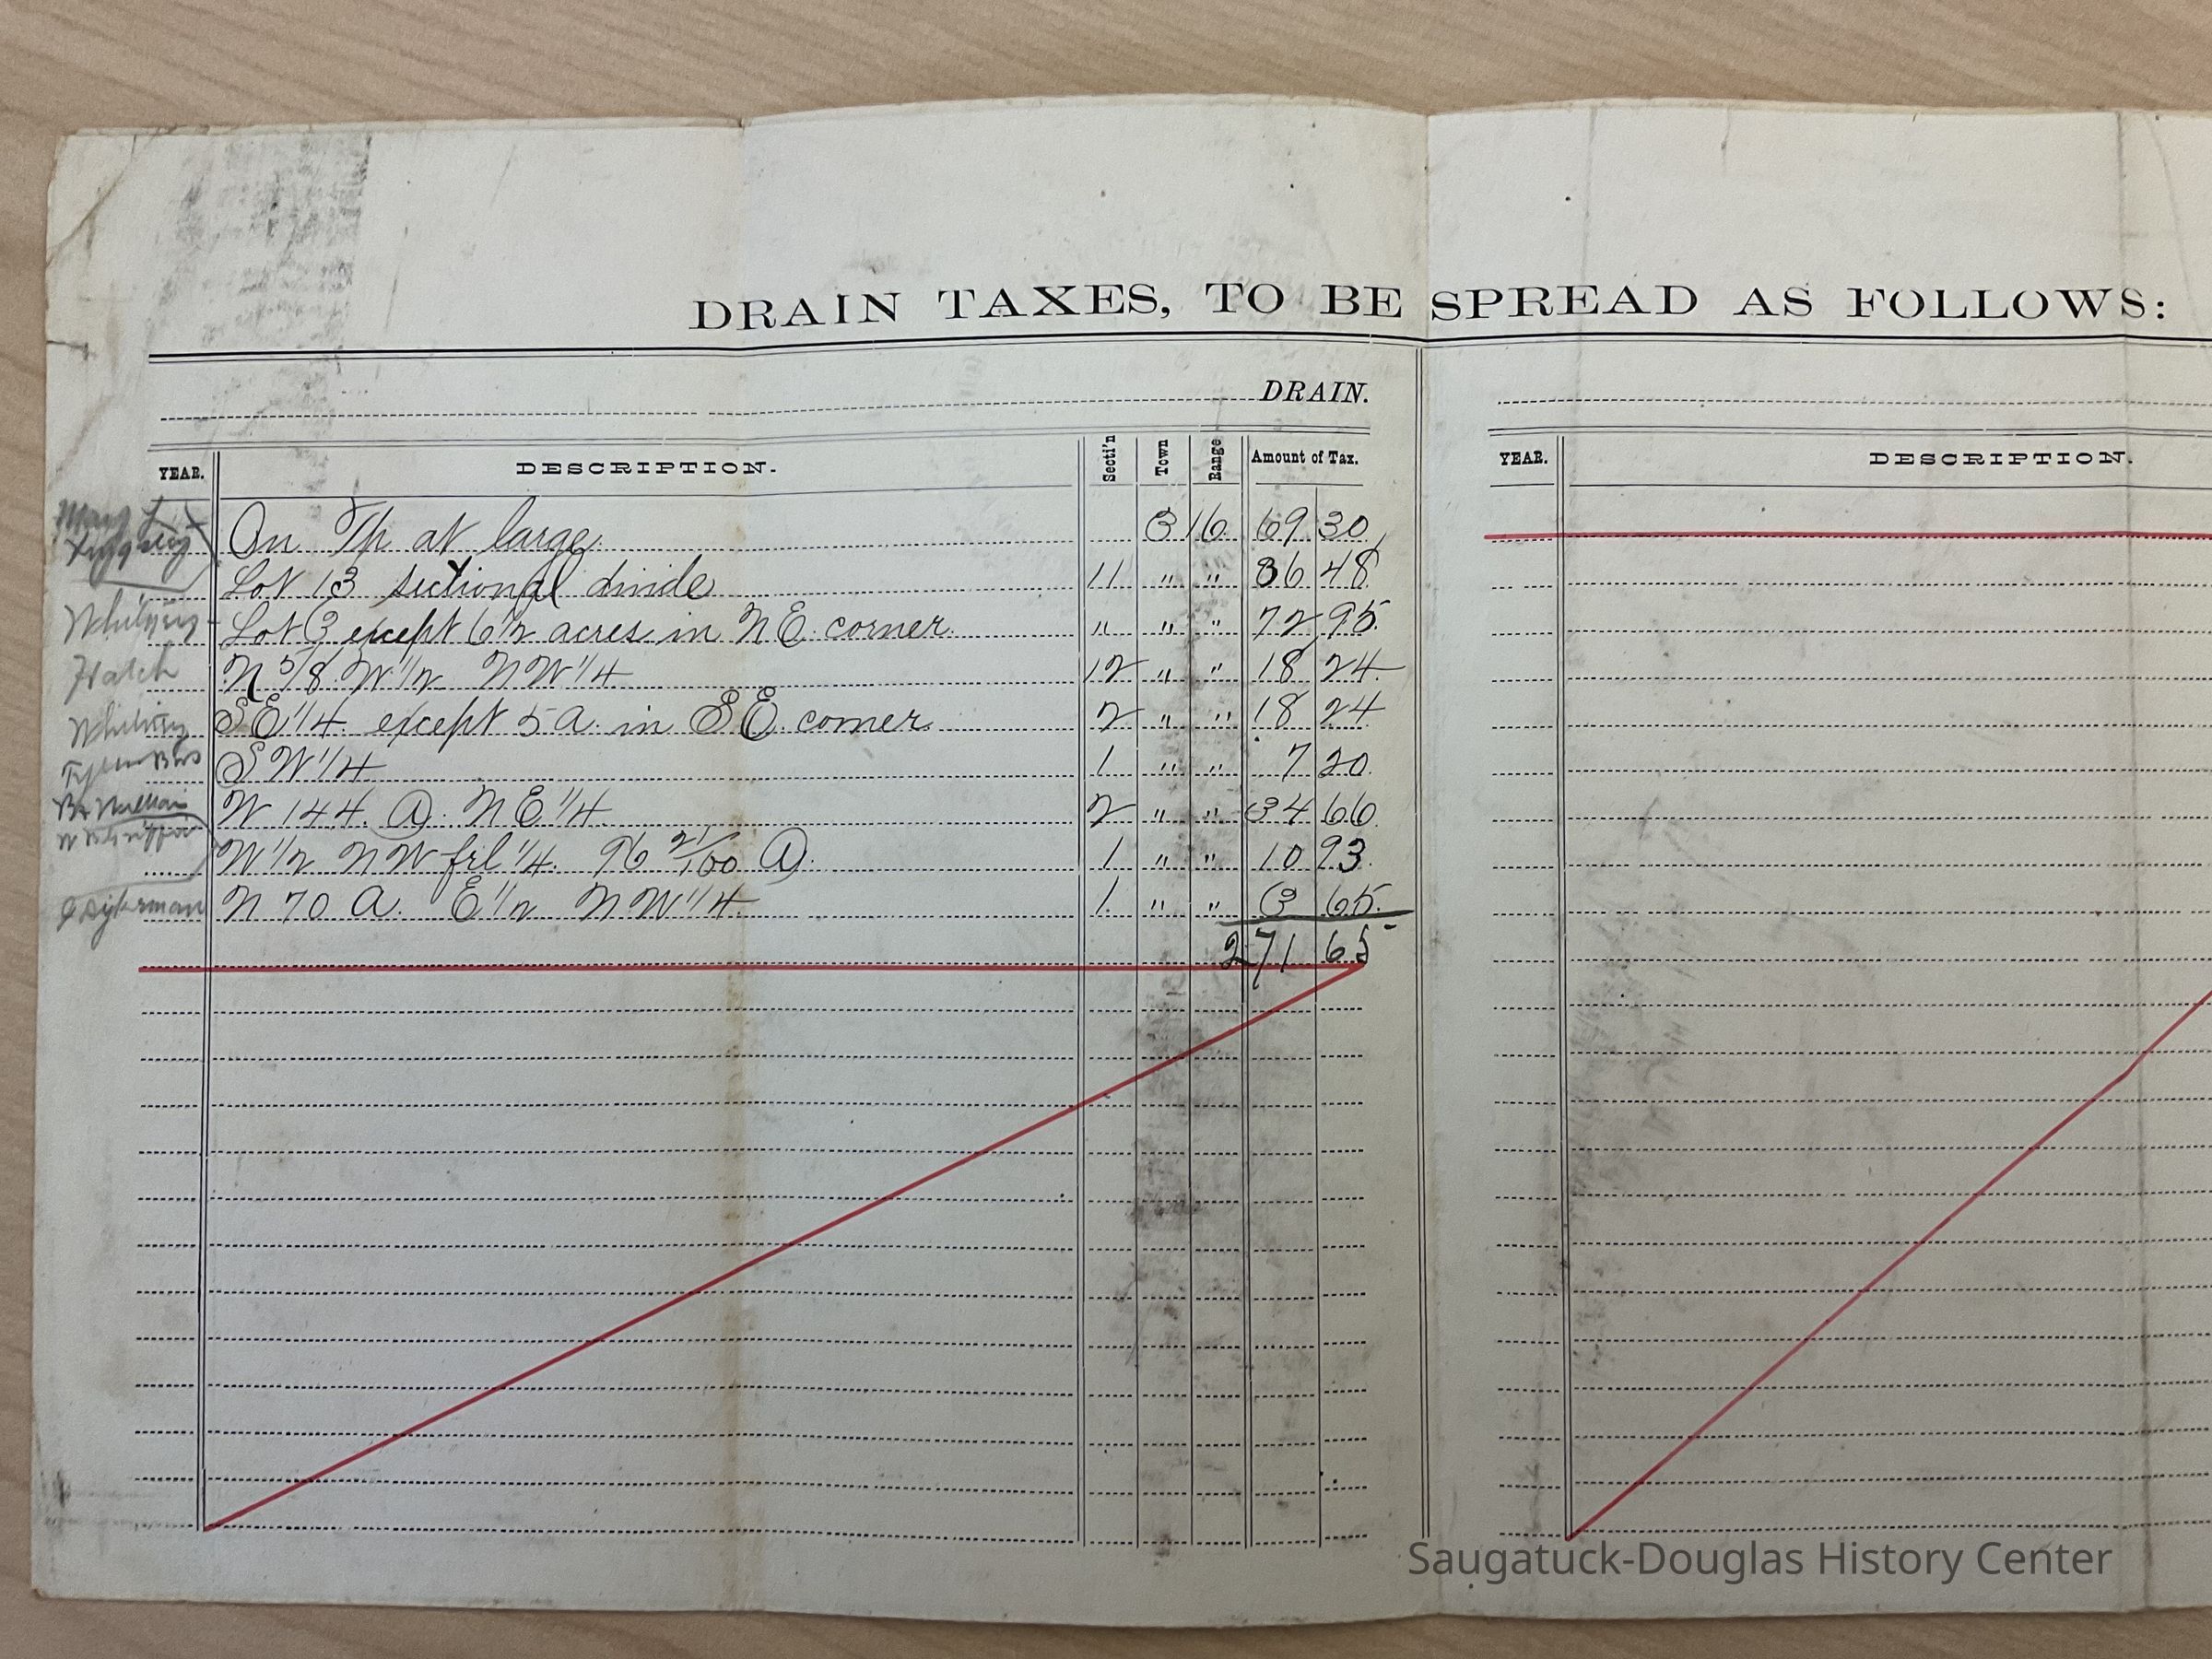 DRAIN TAXES, TO BE SPREAD AS FOLLOWS:
DRAIN.
YEAR. DESCRIPTION. Secti'n Town Range Amount of Tax.
On Tp at large 3 16 69 30
Lot 13 sectional divide 11 " " 36 48
Whitney Lot 3 except 6 1/2 acres in NE corner " " " 72 95
Hatch N 5/8 W 1/2 NW 1/4 12 " " 18 24
Whitney SE 1/4 except 5 a. in SE corner 2 " " 18 24
SW 1/4 1 " " 7 20
W 144 A NE 1/4 2 " " 34 66
W 1/2 NW frl 1/4 96 21/100 A 1 " " 10 93
N 70 A. E 1/2 NW 1/4 1 " " 3 65
271 65
YEAR. DESCRIPTION.
Saugatuck-Douglas History Center